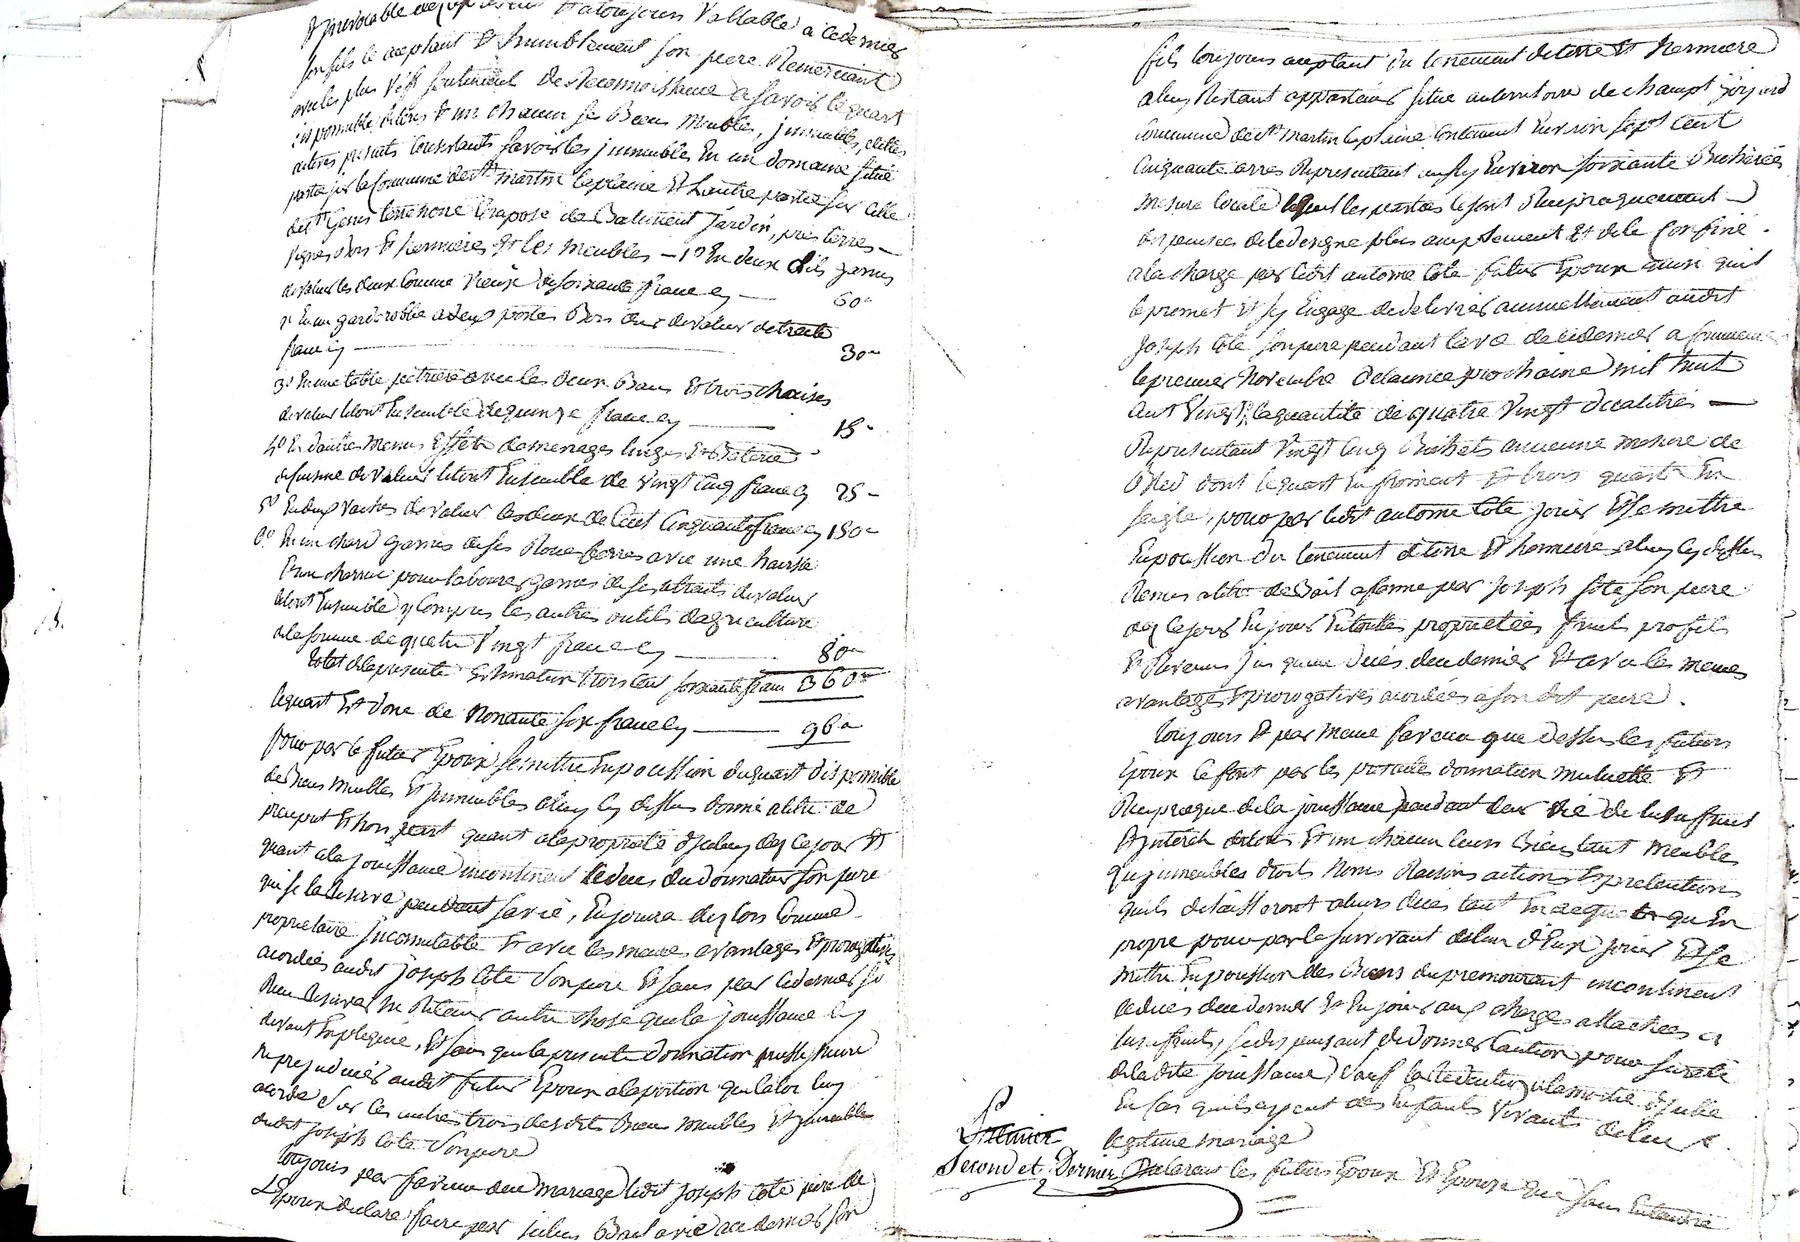 Et irrevocable des a present Et a toujours Vallable a cedernier
son fils le aceptant Et humblement son pere Remerciant
avec les plus Vifs sentiment de Reconnoissance a savoir le quart
disponnible de tous Et un chacun ses Biens Meubles, jmmeubles,
présents Consistants savoir les jmmeubles En un domaine situé
partie sur la Commune de St martin laplaine Et Lautre partie sur celle
de St Genis terrenoire Composé de Batiment Jardin, près terres –
Vignes Bois Et hermières Et les meubles – 1o En deux lits garnis
de valeur les deux Comme Vieux de soixante franc cy — 60"
2o En un garderobbe a deux portes Bois dur de valeur de trente
franc cy — 30"
3o En une table pétrière avec les deux Bans Et trois chaises
de valeur letout Ensemble de quinze franc cy — 15"
4o En dautres Menus Effets de menages linges Et Baterie
de cuisine de Valeur letout Ensemble de Vingt Cinq franc cy 25 –
5o En deux vaches de valeur les deux de Cent Cinquante franc cy 150"
6o En un chard garnis de ses Roues ferres avec une hairse
Et une charrue pour labourer garnis de ses atraits de valeur
letout Ensemble y Compris les autre outils dagriculture
de la somme de quatre Vingt franc cy — 80"
total de la presente Estimation trois cent soixante franc 360"
le quart Est donc de Nonante six franc cy — 96"
pour par le futur Epoux se mettre En possession du quart disponnible
de Biens meubles Et jmmeubles a luy cy dessus donné a titre de
preciput Et hors part quant a la proprieté d'jceluy des ce jour Et
quant a la jouissance incontinent le deces du donnateur son pere
qui se la Reserve pendant sa vie, En jouira des lors Comme
proprietaire jncomutable Et avec les meme avantages Et prerogatives
acordées audit joseph Cote son pere Et sans par cedernier se
Rien Reserver ni Retenir autre chose que la jouissance cy
devant Expliquée, Et sans que la presente donnation puisse nuire
ni prejudicier audit futur Epoux a la portion que la loi luy
acorde sur les autres trois desdits Biens meubles Et jmmeubles
dudit joseph Cote son pere
toujours par faveur dece mariage ledit joseph Cote pere de
L'Epoux declare faire par Bail a vie a cedernier son
fils toujours aceptant du tenement de terre Et hermiere
a luy Restant appartenir situe au territoire de champt
Commune de St martin laplaine Contenant Environ sept cent
Cinquante arres Representant Environ soixante Bicherées
Mesure locale lequel les parties se sont Reciproquement
dispensées de le designé plus amplement Et de le Confiné .
a la charge par ledit antoine Cote futur Epoux ainsi quil
le promet Et s'y Engage de delivrer annuellement audit
Joseph Cote son pere pendant la vie de cedernier a commencer
le premier Novembre de lannée prochaine mil huit
cent Vingt la quantité de quatre Vingt decalitres —
Representant Vingt Cinq Bichets ancienne mesure de
Bled dont le quart En froment Et trois quarts En
seigle, pour par ledit antoine Cote jouir Et se mettre
En possession du tenement de terre Et hermiere a luy cy dessus
Remis a titre de Bail a ferme par joseph Cote son pere
des ce jour En jouir En toutte proprietées fruits profits
Et Revenus jusquau deces de ce dernier Et avec les memes
avantages Et prerogatives acordées a son dit pere .
toujours Et par meme faveur que dessus les futurs
Epoux se sont par les presentes donnation mutuelle Et
Reciproque de la jouissance pendant leur vie de lusufruit
Et jnterêt de tous Et un chacun leurs Biens tant meubles
qujmmeubles droits Noms Raisons actions Et pretentions
quils delaisseront a leurs deces tant En acquets qu En
propre pour par le survivant de l'un deux jouir Et se
mettre En possession des Biens du premourant incontinent
le deces de ce dernier Et En jouir aux charges attachées a
lusufruits, se dispensant de donner Caution pour sureté
de la dite jouissance, sauf la Reduction a la moitié d'jcelle
En Cas quils ayent des Enfants Vivants de leur
legitime mariage
Premier
Second et Dernier declarant les futurs Epoux Et Epouse que sans Entendre